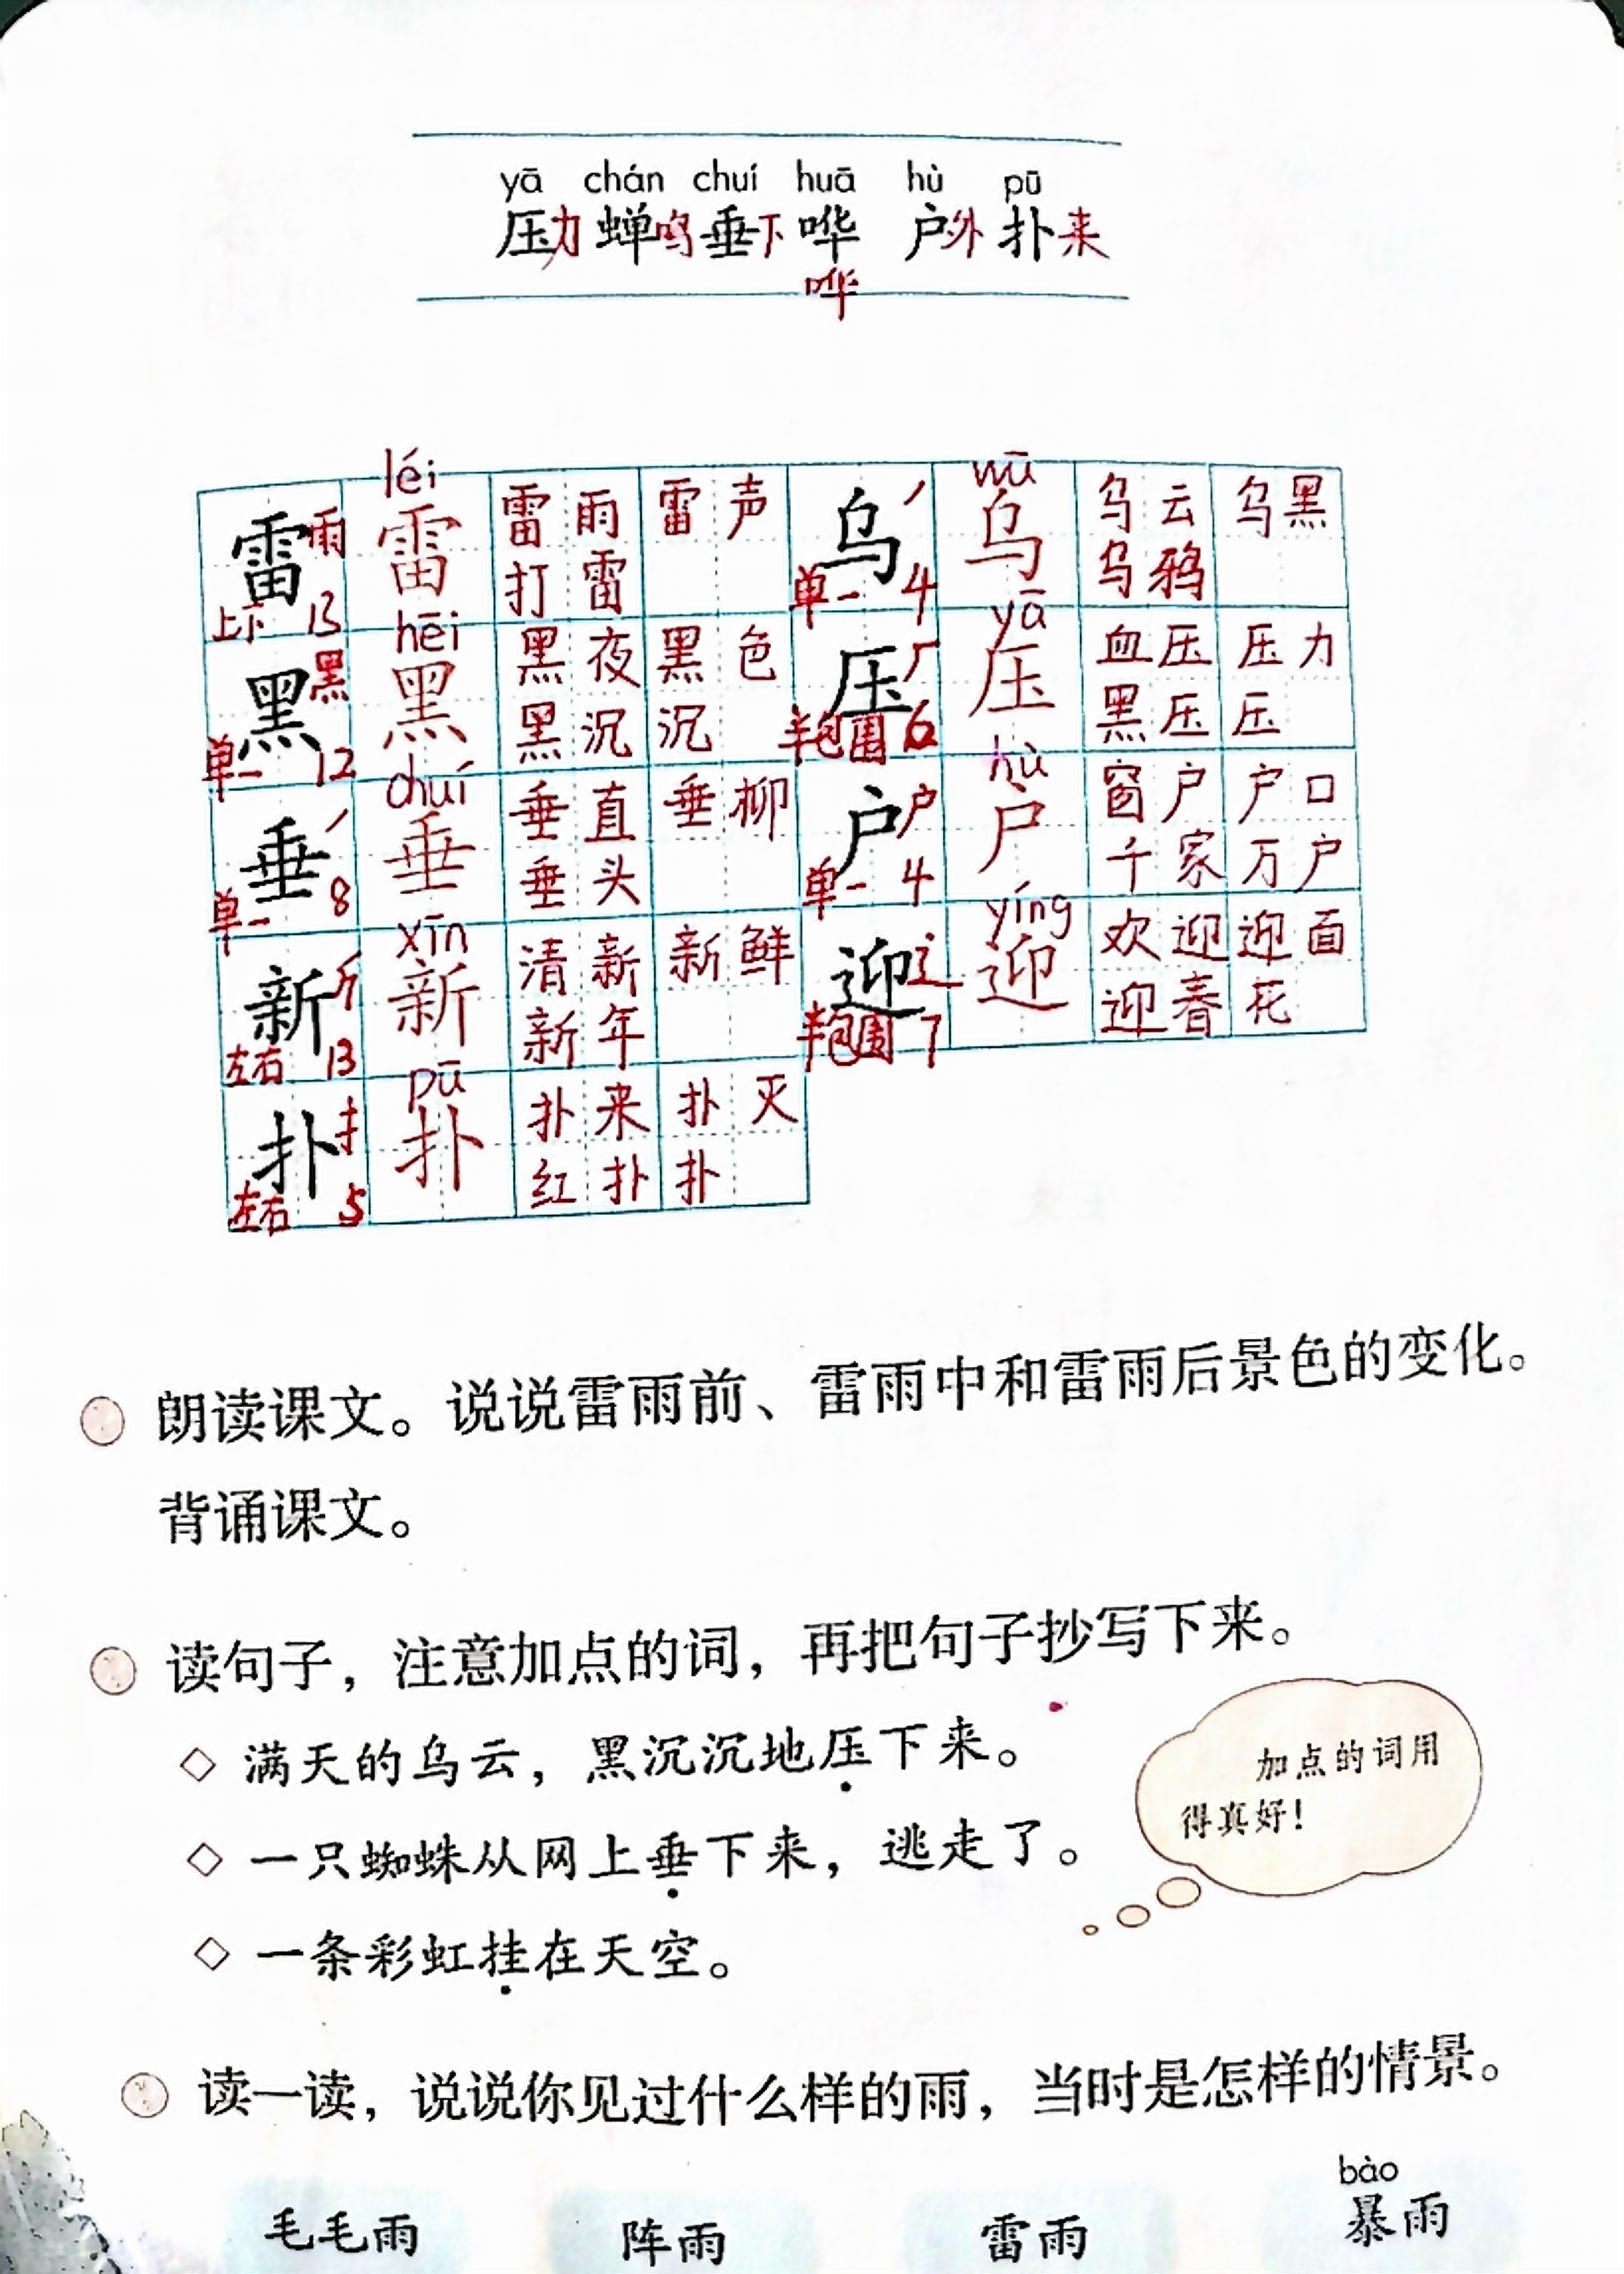 yā chán chuí huā hù pū
压力 蝉鸣 垂下 哗 户外 扑来
哗
léi wū
雷 雨 雷 雷 雨 雷 声 乌 丿 乌 乌 云 乌 黑
上下 13 打 雷 单一 4 乌 鸦
hēi yā
黑 黑 黑 黑 夜 黑 色 压 厂 压 血 压 压 力
单一 12 黑 沉 沉 半包围 6 黑 压 压
chuí hù
垂 丿 垂 垂 直 垂 柳 户 户 户 窗 户 户 口
单一 8 垂 头 单一 4 千 家 万 户
xīn yíng
新 斤 新 清 新 新 鲜 迎 辶 迎 欢 迎 迎 面
左右 13 新 年 半包围 7 迎 春 花
pū
扑 扌 扑 扑 来 扑 灭
左右 5 红 扑 扑
朗读课文。说说雷雨前、雷雨中和雷雨后景色的变化。
背诵课文。
读句子，注意加点的词，再把句子抄写下来。
◇ 满天的乌云，黑沉沉地压下来。
加点的词用
得真好！
◇ 一只蜘蛛从网上垂下来，逃走了。
◇ 一条彩虹挂在天空。
读一读，说说你见过什么样的雨，当时是怎样的情景。
bào
毛毛雨 阵雨 雷雨 暴雨